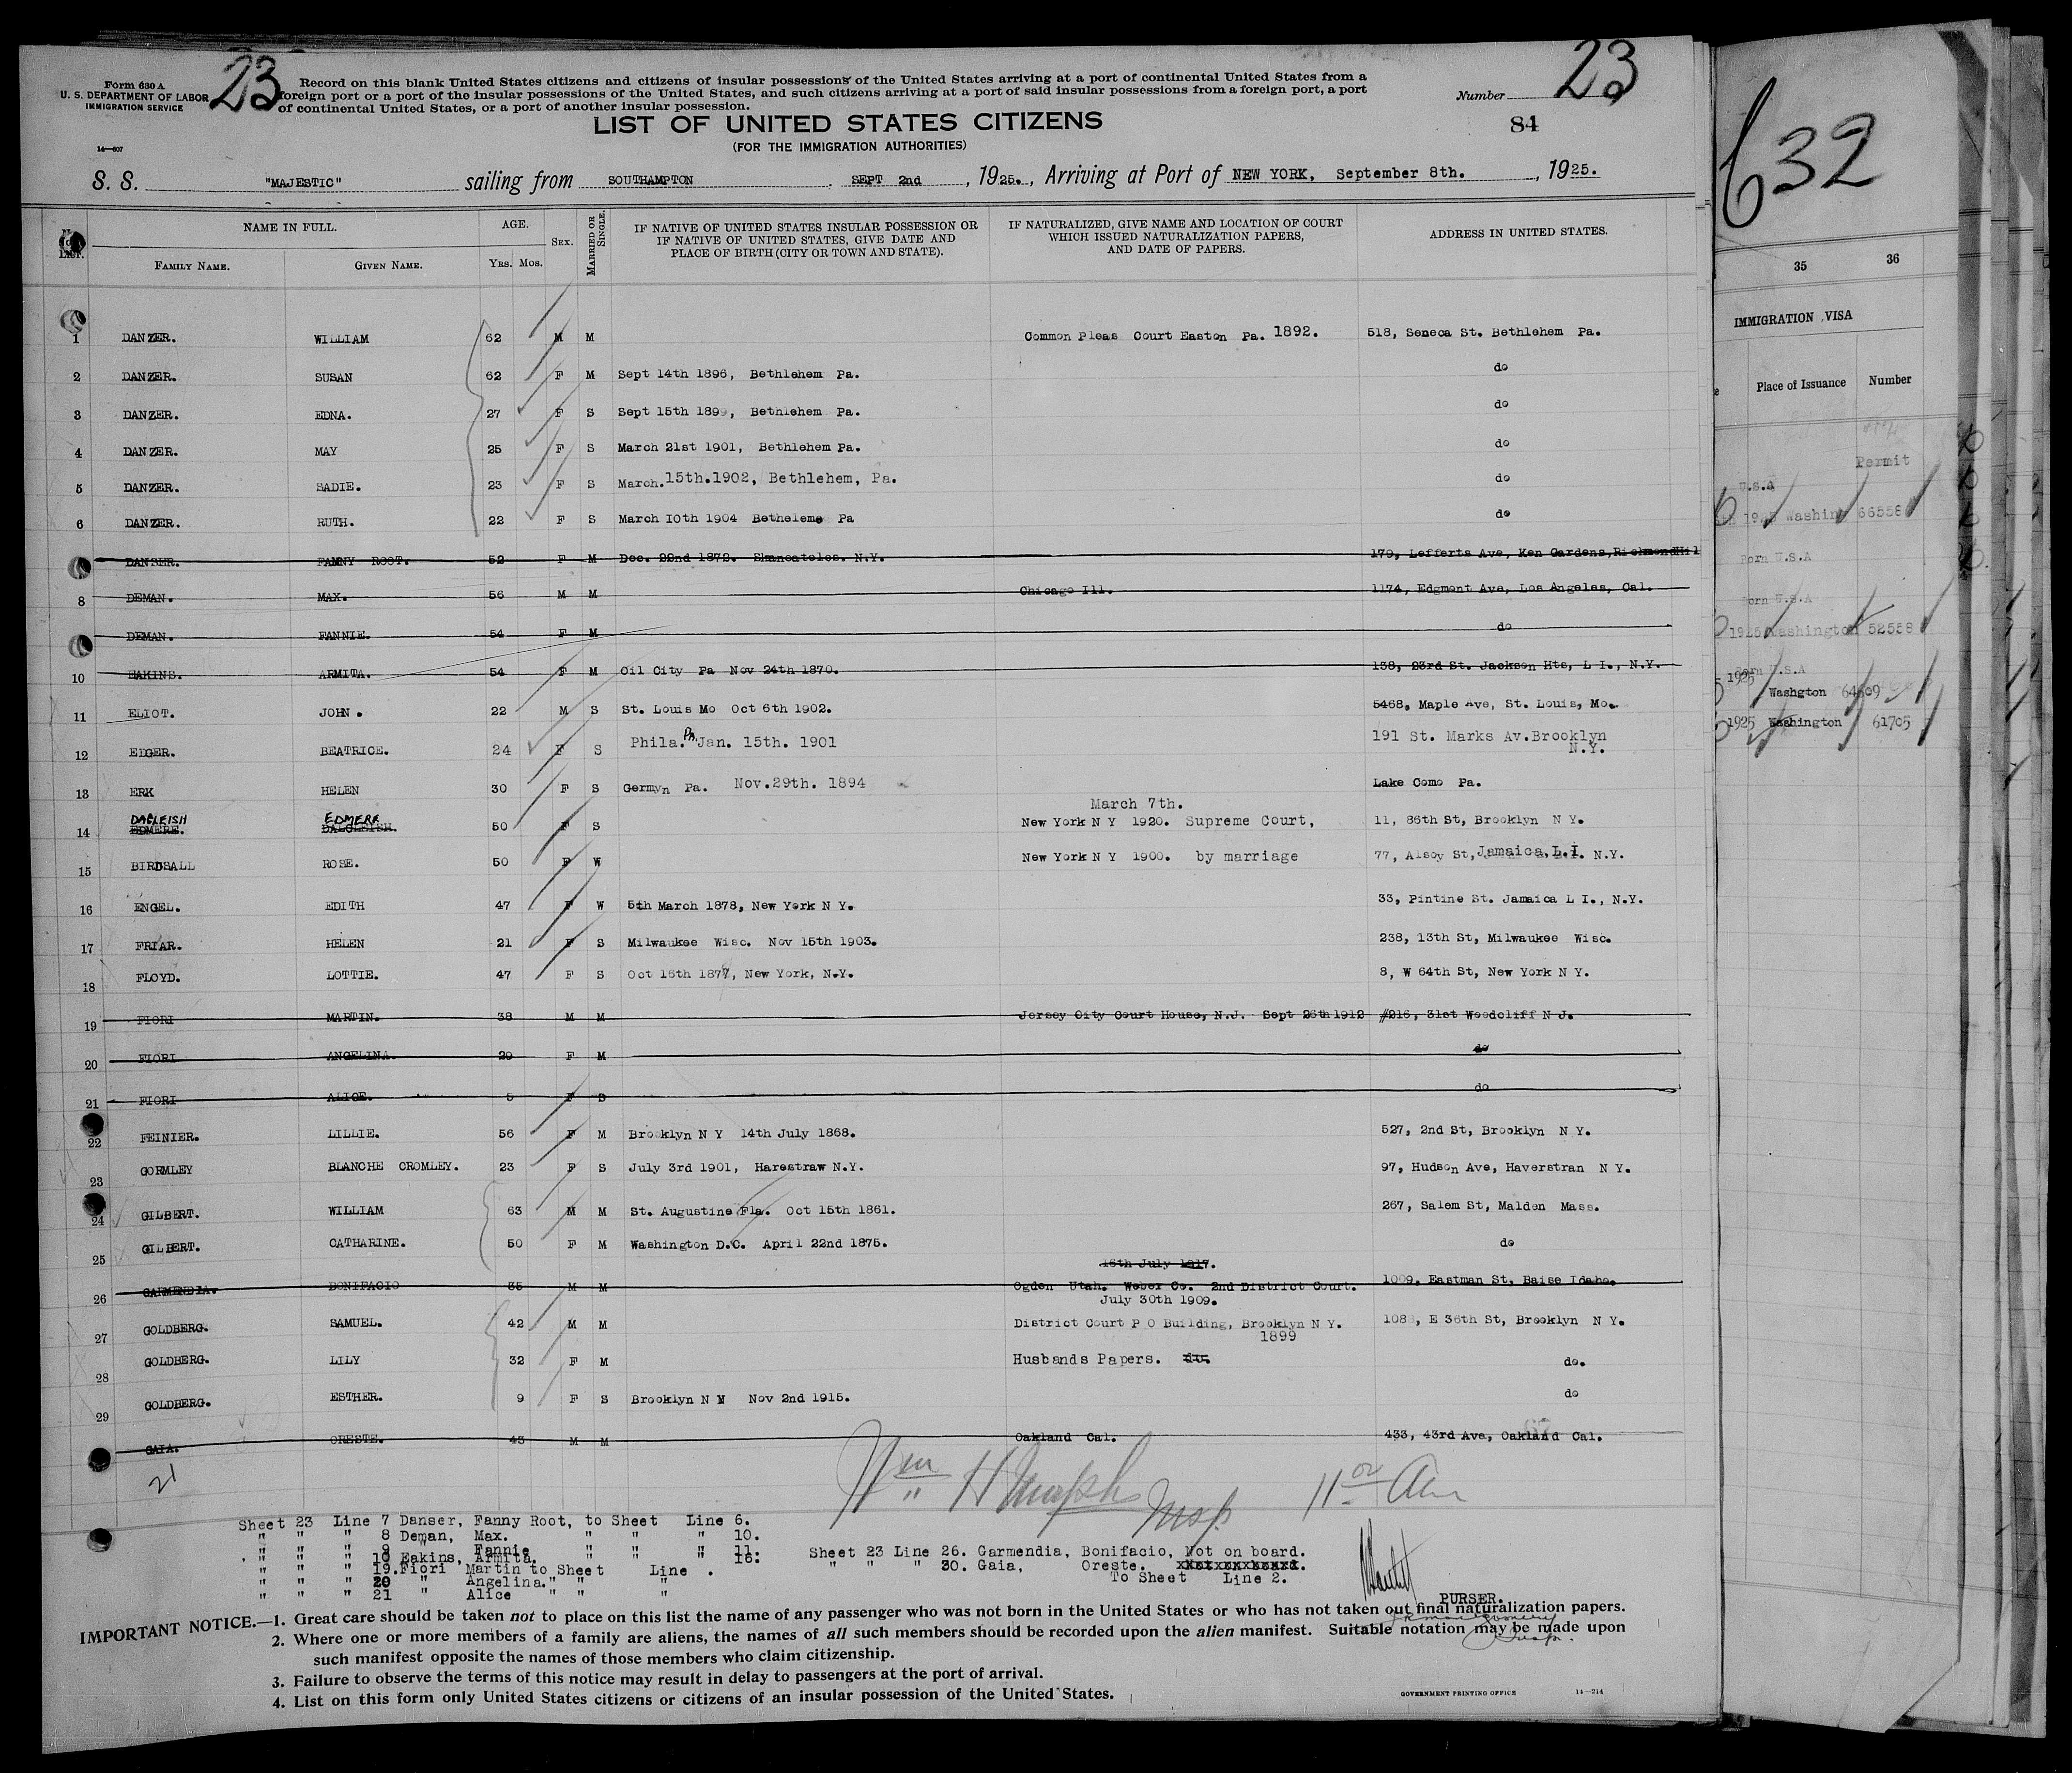 Form 630 A
U. S. DEPARTMENT OF LABOR
IMMIGRATION SERVICE
23
Record on this blank United States citizens and citizens of insular possessions of the United States arriving at a port of continental United States from a
foreign port or a port of the insular possessions of the United States, and such citizens arriving at a port of said insular possessions from a foreign port, a port
of continental United States, or a port of another insular possession.
Number 23
LIST OF UNITED STATES CITIZENS
84
(FOR THE IMMIGRATION AUTHORITIES)
14—607
S. S. "MAJESTIC" sailing from SOUTHAMPTON, SEPT 2nd, 1925., Arriving at Port of NEW YORK, September 8th., 1925.
NAME IN FULL. AGE. SEX. MARRIED OR SINGLE. IF NATIVE OF UNITED STATES INSULAR POSSESSION OR IF NATIVE OF UNITED STATES, GIVE DATE AND PLACE OF BIRTH (CITY OR TOWN AND STATE). IF NATURALIZED, GIVE NAME AND LOCATION OF COURT WHICH ISSUED NATURALIZATION PAPERS, AND DATE OF PAPERS. ADDRESS IN UNITED STATES.
FAMILY NAME. GIVEN NAME. Yrs. Mos.
1 DANZER. WILLIAM 62 M M Common Pleas Court Easton Pa. 1892. 518, Seneca St. Bethlehem Pa.
2 DANZER. SUSAN 62 F M Sept 14th 1896, Bethlehem Pa. do
3 DANZER. EDNA. 27 F S Sept 15th 1899, Bethlehem Pa. do
4 DANZER. MAY 25 F S March 21st 1901, Bethlehem Pa. do
5 DANZER. SADIE. 23 F S March.15th.1902, Bethlehem, Pa. do
6 DANZER. RUTH. 22 F S March 10th 1904 Betheleme Pa do
DANSER. FANNY ROOT. 52 F M Dec. 22nd 1872. Skaneateles. N.Y. 179, Lefferts Ave, Ken Gardens, Richmond Hil
8 DEMAN. MAX. 56 M M Chicago Ill. 1174, Edgmont Ave, Los Angeles, Cal.
DEMAN. FANNIE. 54 F M do
10 EAKINS. ARMITA. 54 F M Oil City Pa Nov 24th 1870. 138, 23rd St. Jackson Hts, L I., N.Y.
11 ELIOT. JOHN. 22 M S St. Louis Mo Oct 6th 1902. 5468, Maple Ave, St. Louis, Mo.
12 EDGER. BEATRICE. 24 F S Phila. Pa. Jan. 15th. 1901 191 St. Marks Av.Brooklyn
N.Y.
13 ERK HELEN 30 F S Germyn Pa. Nov.29th. 1894 Lake Como Pa.
DAGLEISH EDMERE March 7th.
14 EDMERE. DALGLEISH. 50 F S New York N Y 1920. Supreme Court, 11, 86th St, Brooklyn N Y.
15 BIRDSALL ROSE. 50 F W New York N Y 1900. by marriage 77, Alsoy St, Jamaica, L.I. N.Y.
16 ENGEL. EDITH 47 F W 5th March 1878, New York N Y. 33, Pintine St. Jamaica L I., N.Y.
17 FRIAR. HELEN 21 F S Milwaukee Wisc. Nov 15th 1903. 238, 13th St, Milwaukee Wisc.
18 FLOYD. LOTTIE. 47 F S Oct 16th 1877, New York, N.Y. 8, W 64th St, New York N Y.
19 FIORI MARTIN. 38 M M Jersey City Court House, N.J. Sept 26th 1912 #216, 31st Woodcliff N J.
20 FIORI ANGELINA. 29 F M do
21 FIORI ALICE. 5 F S do
22 FEINIER. LILLIE. 56 F M Brooklyn N Y 14th July 1868. 527, 2nd St, Brooklyn N Y.
23 GORMLEY BLANCHE CROMLEY. 23 F S July 3rd 1901, Harestraw N.Y. 97, Hudson Ave, Haverstran N Y.
24 GILBERT. WILLIAM 63 M M St. Augustine Fla. Oct 15th 1861. 267, Salem St, Malden Mass.
25 GILBERT. CATHARINE. 50 F M Washington D.C. April 22nd 1875. do
16th July 1917.
26 GARMENDIA. BONIFACIO 35 M M Ogden Utah. Weber Co. 2nd District Court. 1009, Eastman St, Baise Idaho.
July 30th 1909.
27 GOLDBERG. SAMUEL. 42 M M District Court P O Building, Brooklyn N Y. 108, E 36th St, Brooklyn N Y.
1899
28 GOLDBERG. LILY 32 F M Husbands Papers. do. do.
29 GOLDBERG. ESTHER. 9 F S Brooklyn N Y Nov 2nd 1915. do
GAIA. ORESTE. 45 M M Oakland Cal. 433, 43rd Ave, Oakland Cal.
21
Sheet 23 Line 7 Danser, Fanny Root, to Sheet Line 6.
" " " 8 Deman, Max. " " " 10.
" " " 9 " Fannie " " " 11.
" " " 10 Eakins, Armita. " " " 16.
" " " 19.Fiori Martin to Sheet Line .
" " " 20 " Angelina." " "
" " " 21 " Alice " " "
Sheet 23 Line 26. Garmendia, Bonifacio, Not on board.
" " " 30. Gaia, Oreste.
To Sheet Line 2.
PURSER.
IMPORTANT NOTICE.—1. Great care should be taken not to place on this list the name of any passenger who was not born in the United States or who has not taken out final naturalization papers.
2. Where one or more members of a family are aliens, the names of all such members should be recorded upon the alien manifest. Suitable notation may be made upon
such manifest opposite the names of those members who claim citizenship.
3. Failure to observe the terms of this notice may result in delay to passengers at the port of arrival.
4. List on this form only United States citizens or citizens of an insular possession of the United States.
GOVERNMENT PRINTING OFFICE 14—214
632
35 36
IMMIGRATION VISA
Place of Issuance Number
Permit
U.S.A
66558
Born U.S.A
Born U.S.A
1925 Washington 52558
Born U.S.A
1925 Washgton
1925 Washington 61705